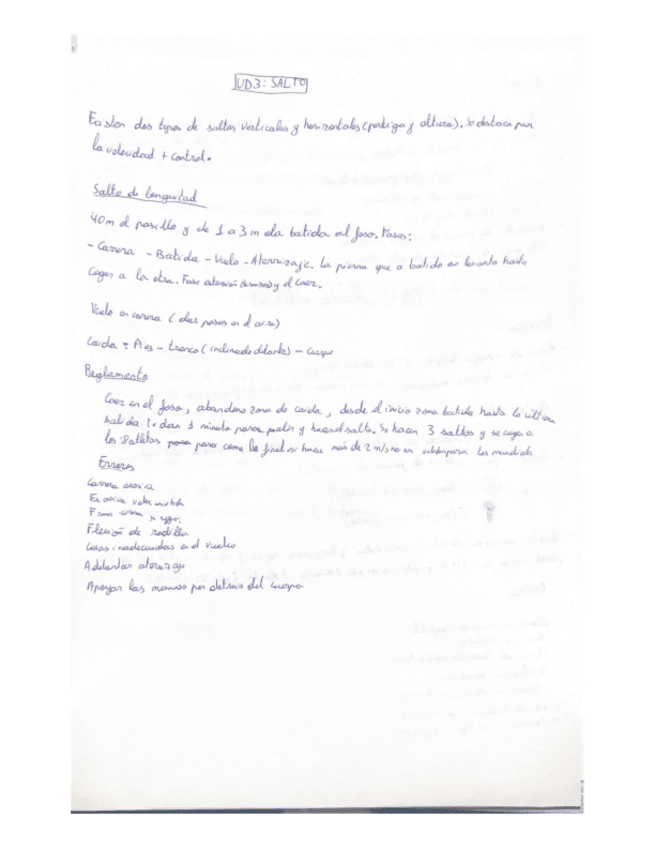 UD3: SALTO
Existen dos tipos de saltos verticales y horizontales (pertiga y altura). Se destaca por
la velocidad + control.
Salto de longuitud
40m el pasillo y de 1 a 3 m la batida al foso. Fases:
- Carrera - Batida - Vuelo - Aterrizaje. La pierna que a batido se levanta hasta
coger a la otra. Fase y el caer.
Vuelo en carrera ( dar pasos en el aire)
Caida: Pies - tronco (inclinado delante) - cuerpo
Reglamento
Caer en el foso, abandono zona de caida, desde el inicio zona batida hasta la ultima
batida. Te dan 1 minuto para y hacer el salto. Se hacen 3 saltos y se coge a
los 8 atletas para la final si hace más de 2 m/s no es los mundiales
Errores
Carrera
Excesiva
Flexión de rodilla
cosas inadecuadas en el vuelo
Adelantar aterrizaje
Apoyar las manos por detras del cuerpo